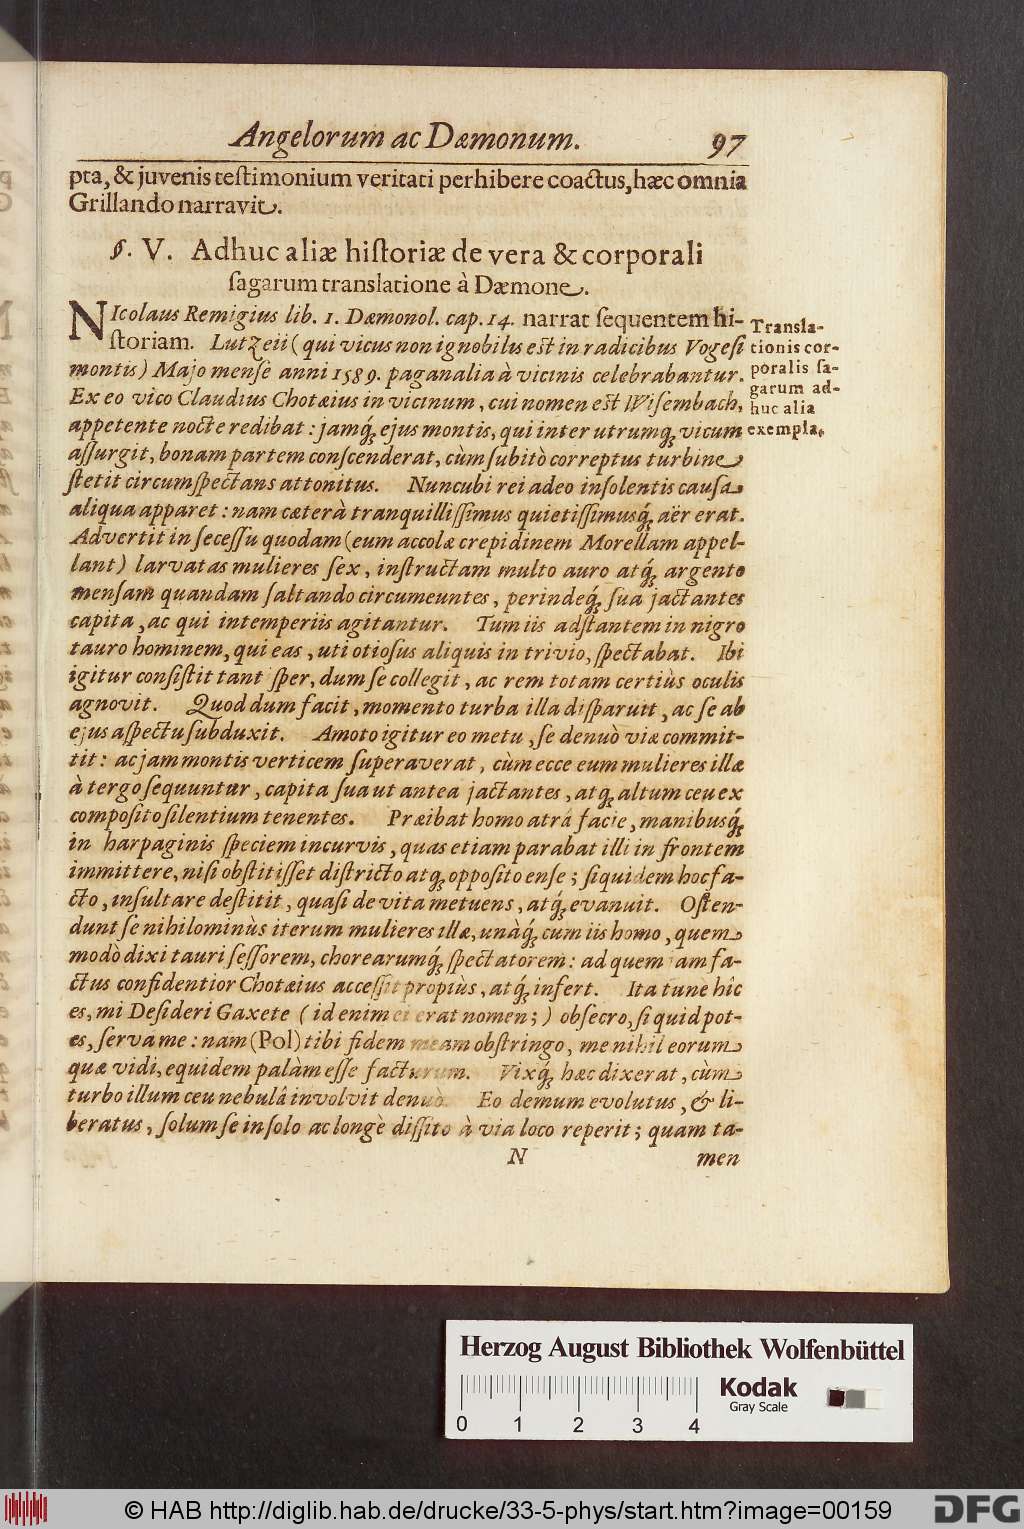 Angelorum ac Dæmonum. 97
pta, & juvenis testimonium veritati perhibere coactus, hæc omnia
Grillando narravit.
§. V. Adhuc aliæ historiæ de vera & corporali
sagarum translatione à Dæmone.
NIcolaus Remigius lib. 1. Dæmonol. cap. 14. narrat sequentem hi-
storiam. Lutzeii (qui vicus non ignobilis est in radicibus Vogesi
montis) Majo mense anni 1589. paganalia à vicinis celebrabantur.
Ex eo vico Claudius Chotæius in vicinum, cui nomen est Wisembach,
appetente nocte redibat: jamq́ ejus montis, qui inter utrumq́ vicum
assurgit, bonam partem conscenderat, cùm subitò correptus turbine
stetit circumspectans attonitus. Nuncubi rei adeo insolentis causa
aliqua apparet: nam cæterà tranquillissimus quietissimusq́ aër erat.
Advertit in secessu quodam (eum accolæ crepidinem Morellam appel-
lant) larvatas mulieres sex, instructam multo auro atq́ argento
mensam quandam saltando circumeuntes, perindeq́ sua jactantes
capita, ac qui intemperiis agitantur. Tum iis adstantem in nigro
tauro hominem, qui eas, uti otiosus aliquis in trivio, spectabat. Ibi
igitur consistit tantisper, dum se collegit, ac rem totam certiùs oculis
agnovit. Quod dum facit, momento turba illa disparuit, ac se ab
ejus aspectu subduxit. Amoto igitur eo metu, se denuò viæ commit-
tit: ac jam montis verticem superaverat, cùm ecce eum mulieres illæ
à tergo sequuntur, capita sua ut antea jactantes, atq́ altum ceu ex
composito silentium tenentes. Præibat homo atrâ facie, manibusq́
in harpaginis speciem incurvis, quas etiam parabat illi in frontem
immittere, nisi obstitisset districto atq́ opposito ense; siquidem hoc fa-
cto, insultare destitit, quasi de vita metuens, atq́ evanuit. Osten-
dunt se nihilominùs iterum mulieres illæ, unàq́ cum iis homo, quem
modò dixi tauri sessorem, chorearumq́ spectatorem: ad quem jam fa-
ctus confidentior Chotæius accessit propiùs, atq́ infert. Ita tune hîc
es, mi Desideri Gaxete (id enim ei erat nomen;) obsecro, si quid pot-
es, serva me: nam (Pol) tibi fidem meam obstringo, me nihil eorum
quæ vidi, equidem palàm esse facturum. Vixq́ hæc dixerat, cùm
turbo illum ceu nebulâ involvit denuò. Eo demum evolutus, & li-
beratus, solum se in solo ac longè dissito à via loco reperit; quam ta-
N men
Transla-
tionis cor-
poralis sa-
garum ad-
huc alia
exempla.
Herzog August Bibliothek Wolfenbüttel
Kodak
Gray Scale
0 1 2 3 4
© HAB http://diglib.hab.de/drucke/33-5-phys/start.htm?image=00159
DFG